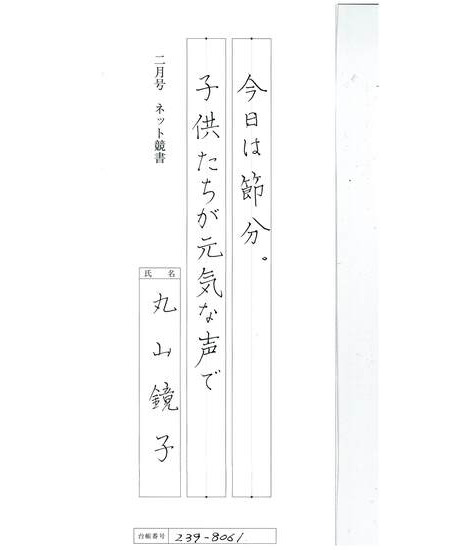 今日は節分。
子供たちが元気な声で
二月号 ネット競書
氏名
丸山鏡子
台帳番号 239-8061